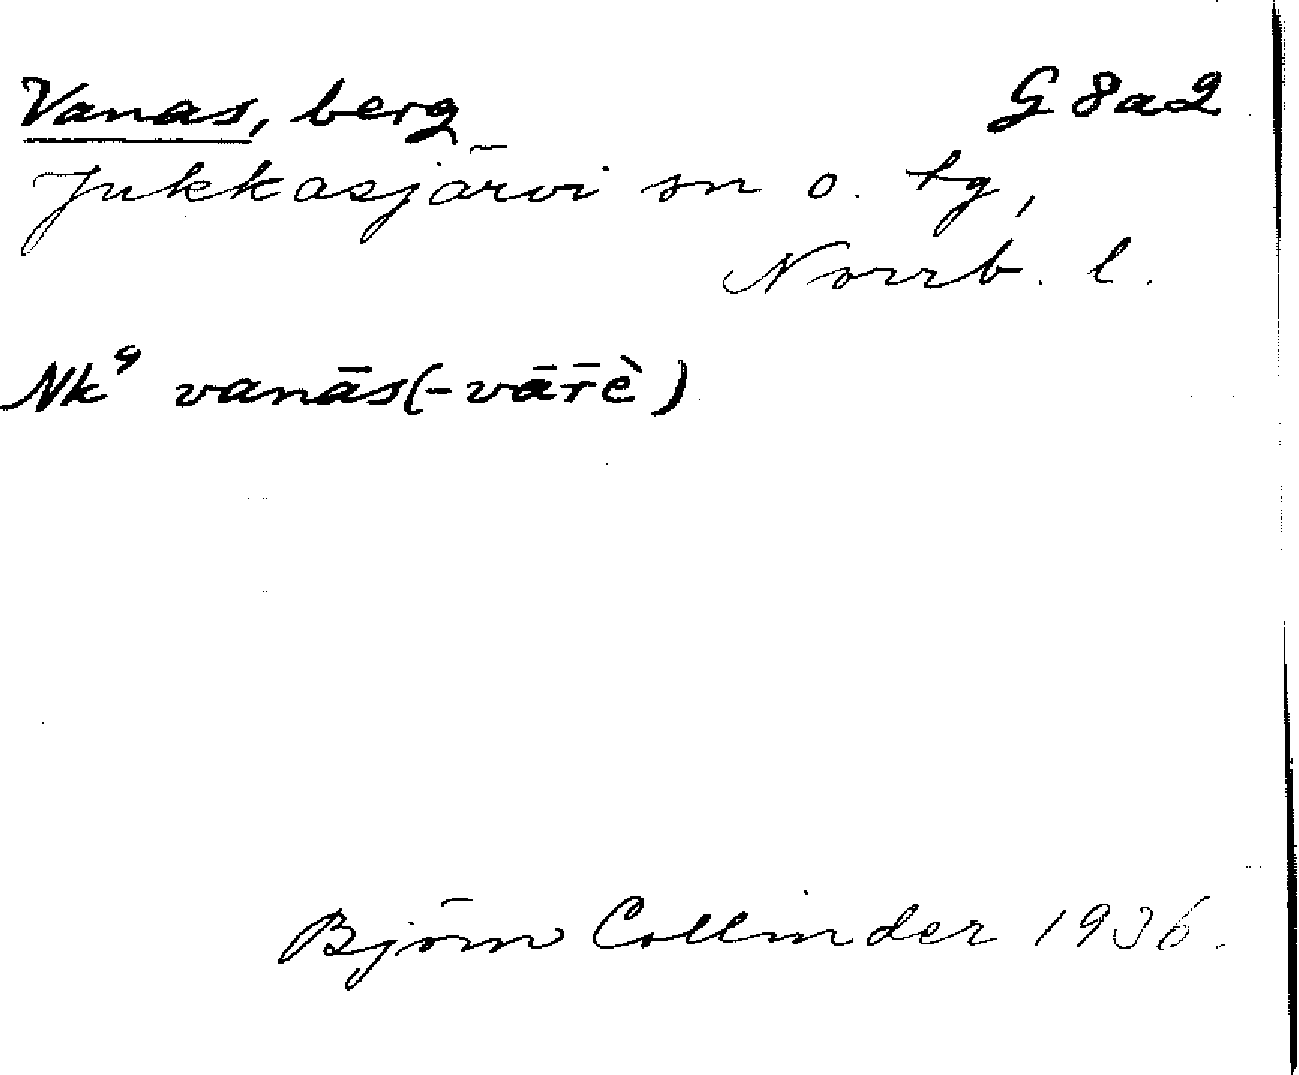 Vanas, berg G 8a2
Jukkasjärvi sn o. tg,
Norrb. l.
Nk⁹ vanās(-vār̄è)
Björn Collinder 1936.